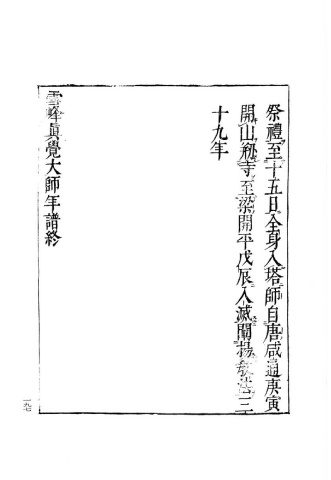 祭禮至十五日全身入塔師自唐咸通庚寅
開山剏寺至梁開平戊辰入滅闡揚敎法三
十九年
雪峰眞覺大師年譜終
一九七